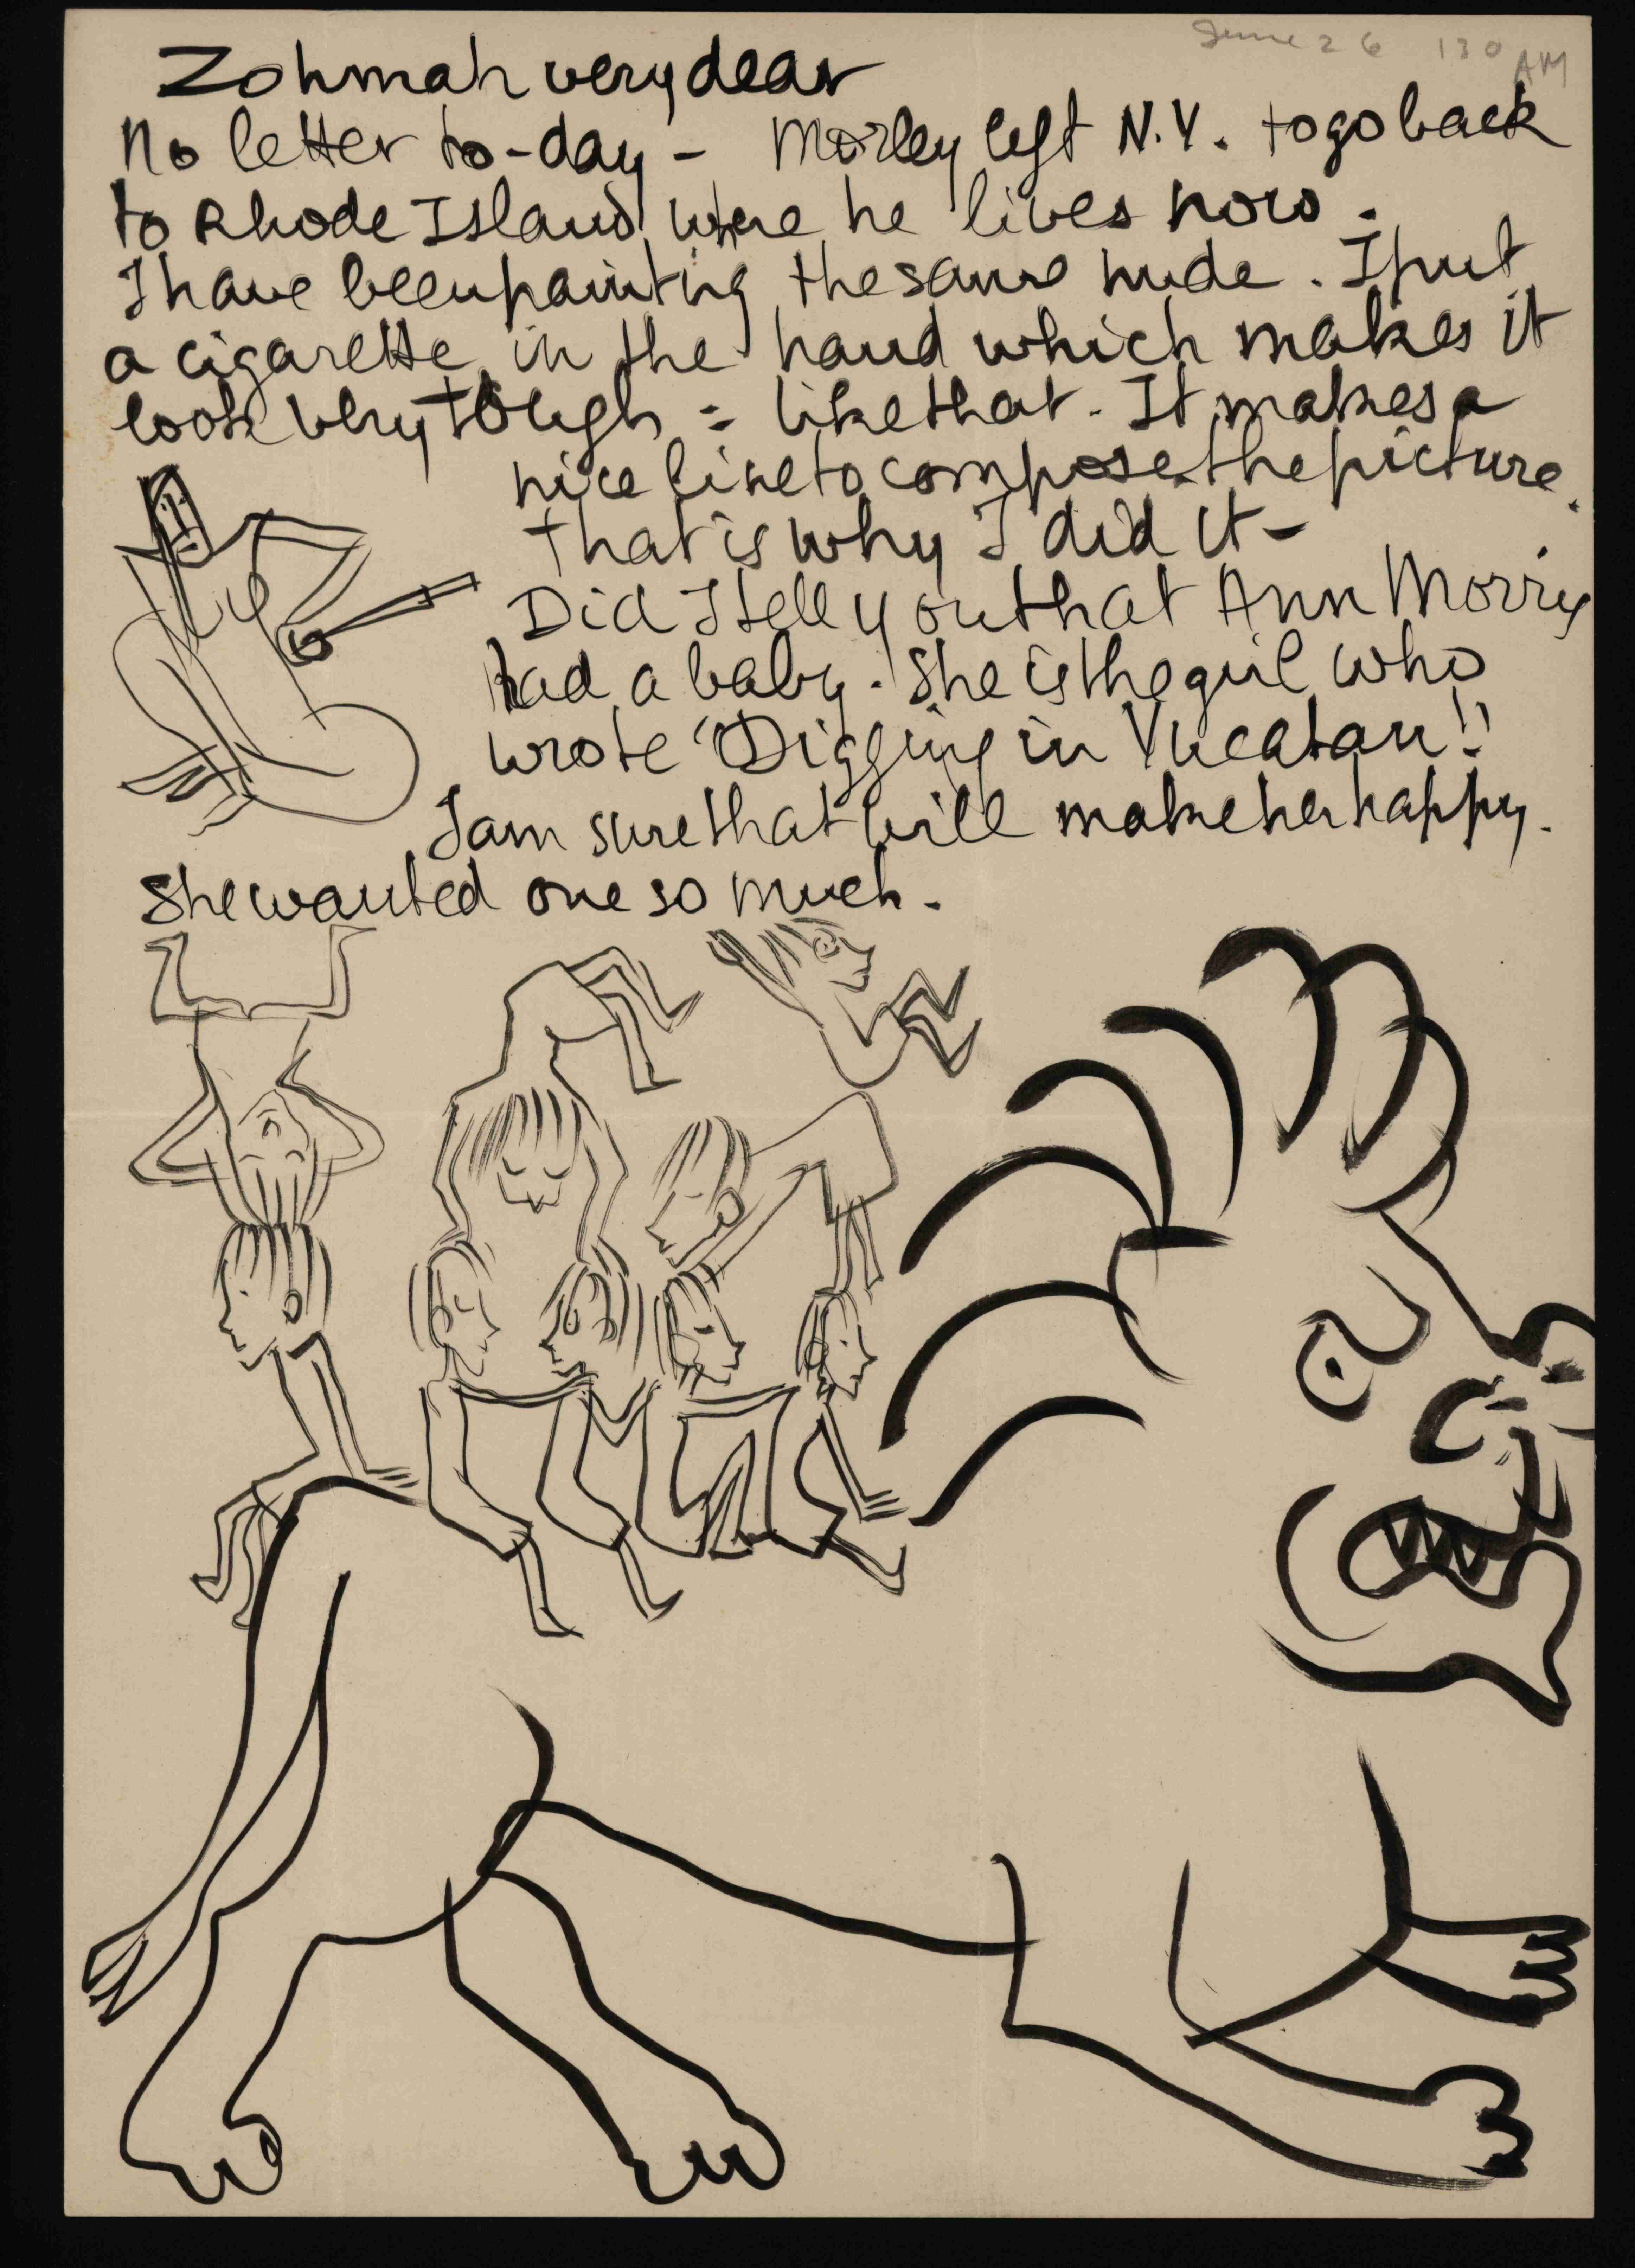 June 26 130 AM
Zohmah very dear
No letter to-day - Morley left N.Y. to go back
to Rhode Island where he lives now.
I have been painting the same nude. I put
a cigarette in the hand which makes it
look very tough = like that. It makes a
nice line to compose the picture.
that is why I did it -
Did I tell you that Ann Morris
had a baby. She is the girl who
wrote "Digging in Yucatan!!
I am sure that will make her happy.
She wanted one so much.